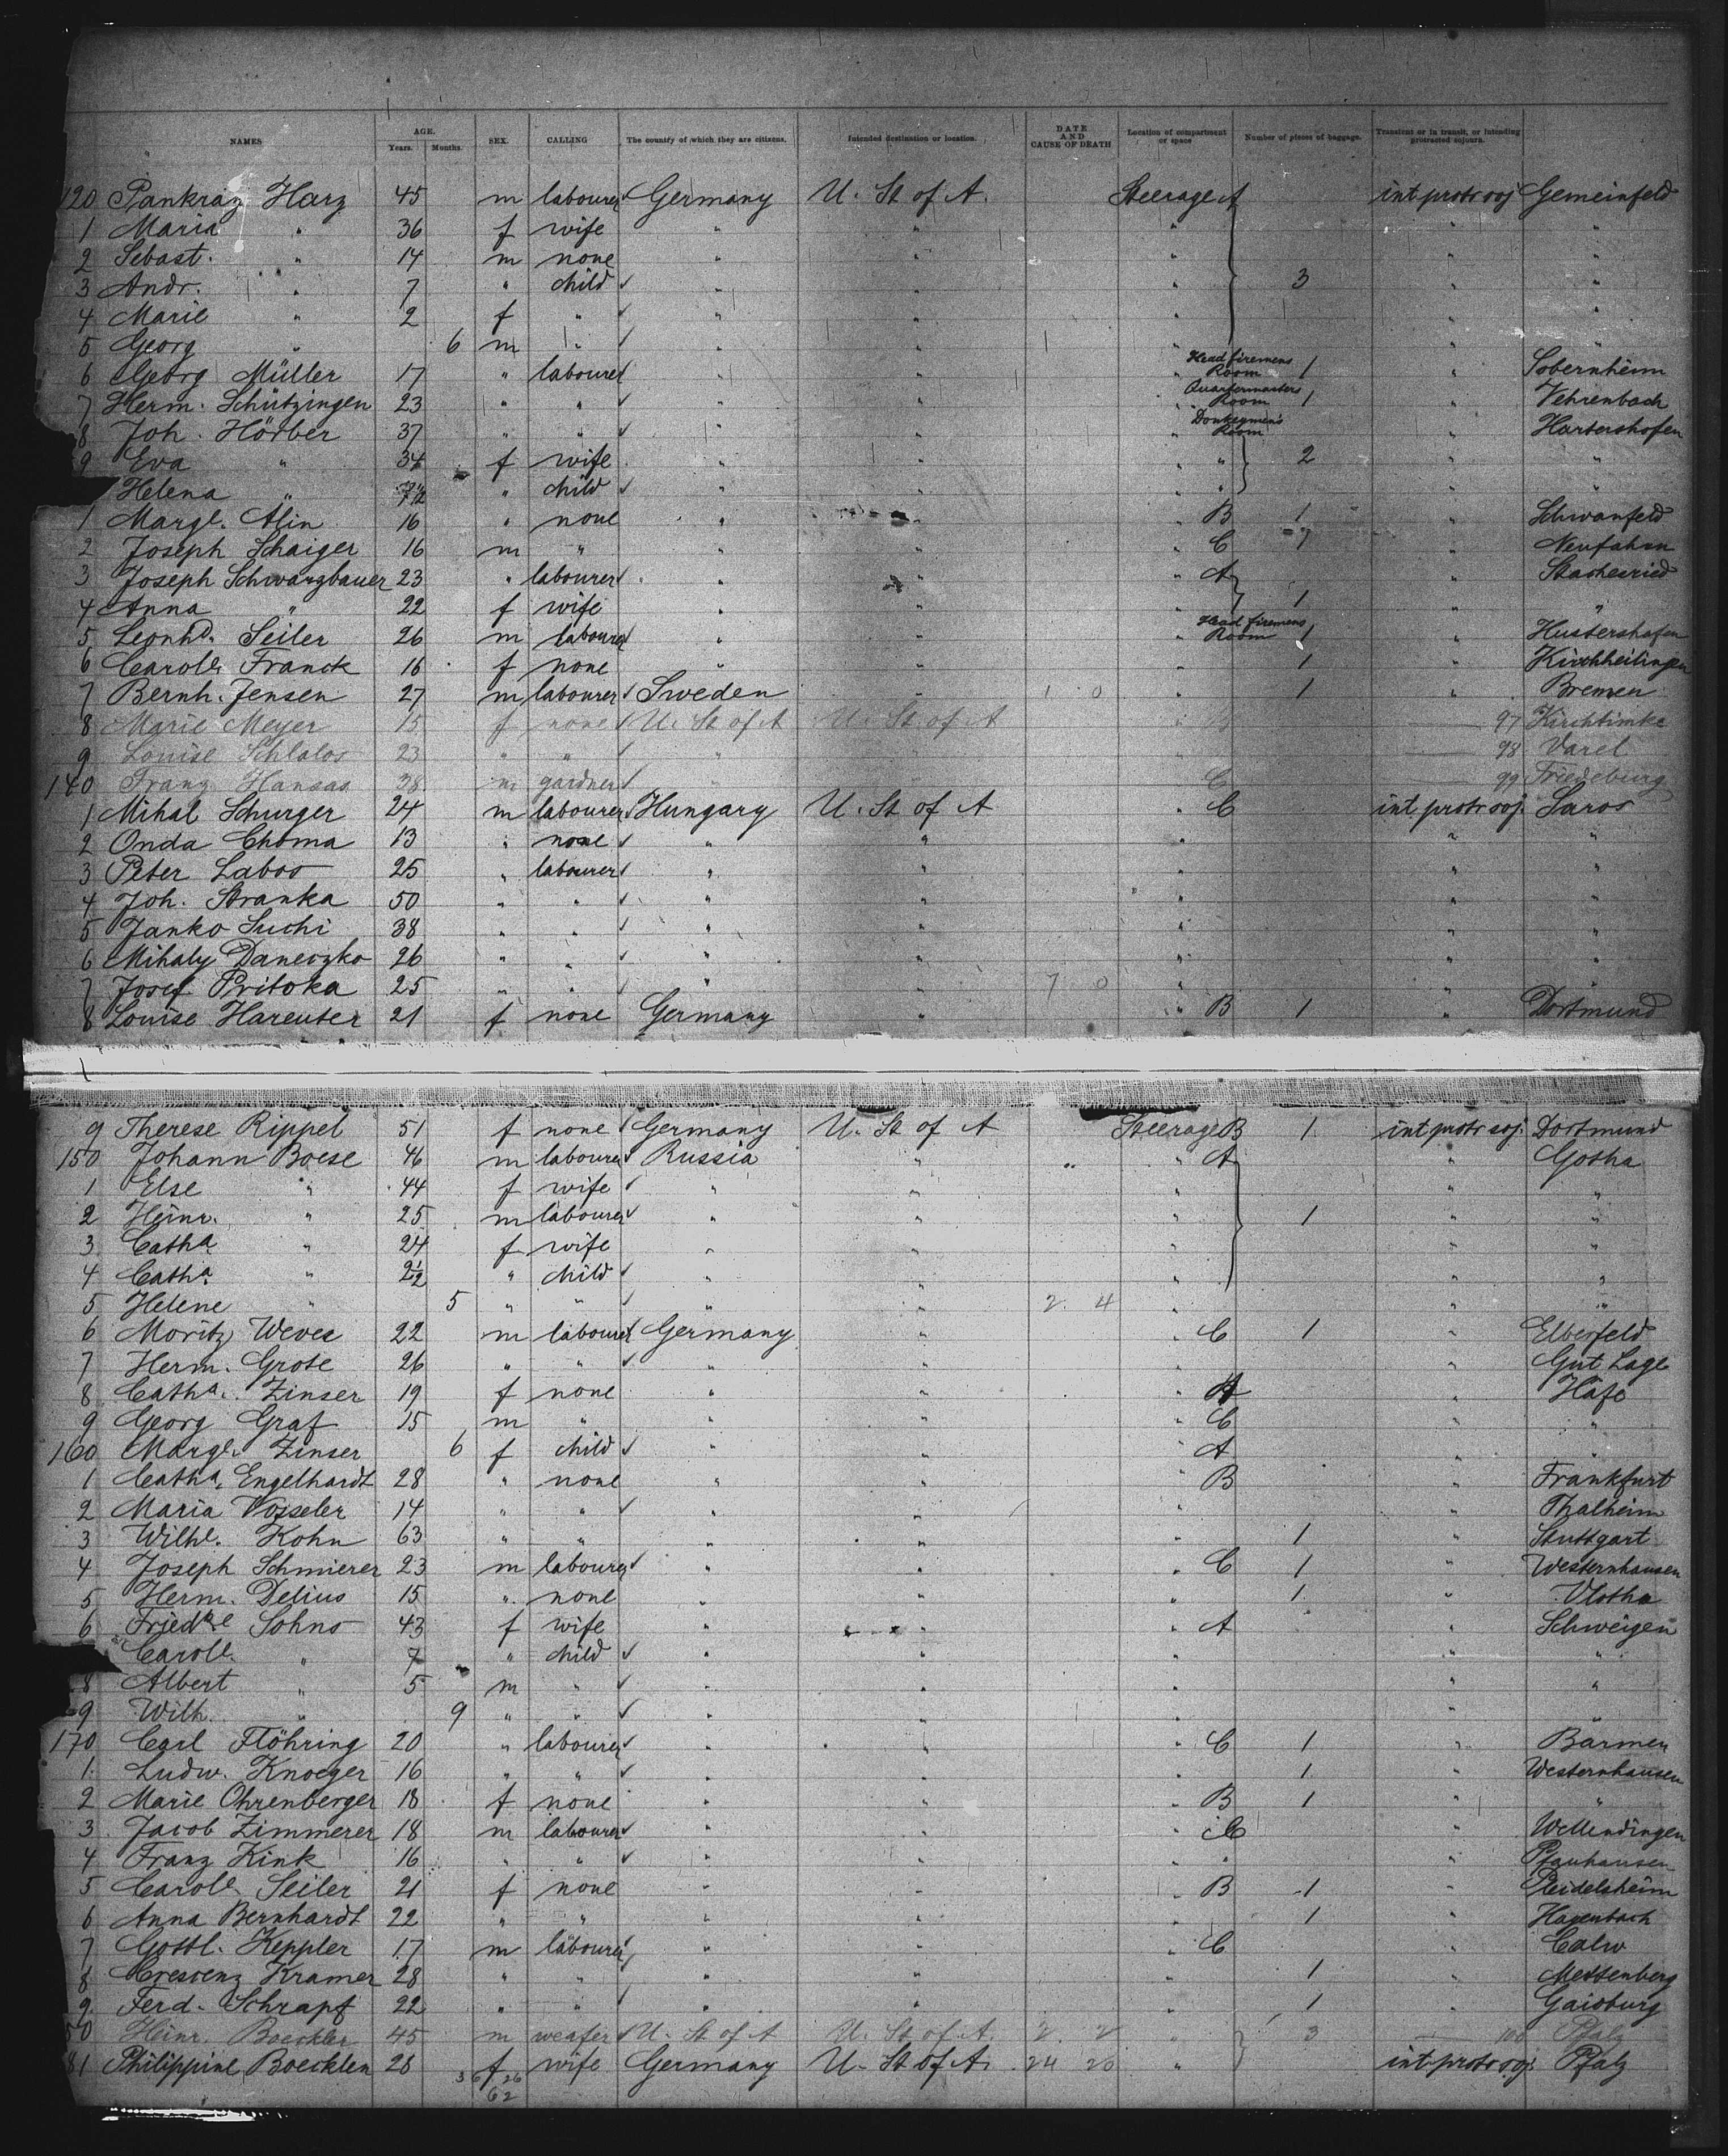 NAMES AGE. Years. Months. SEX. CALLING The country of which they are citizens. Intended destination or location. DATE AND CAUSE OF DEATH Location of compartment or space Number of pieces of baggage. Transient or in transit, or intending protracted sojourn.
120 Pankraz Harz 45 m labourer Germany U. St of A. Steerage A int protr soj Gemeinfeld
1 Maria " 36 f wife " " " " "
2 Sebast. " 14 m none " " " " "
3 Andr. " 7 " child " " " 3 " "
4 Marie " 2 f " " " " " "
5 Georg " 6 m " " " " " "
6 Georg Müller 17 " labourer " " " Head firemens Room 1 " Sobernheim
7 Herm. Schützingen 23 " " " " " Quartermasters Room 1 " Vehrenbach
8 Joh. Hörber 37 " " " " " Donkeymen's Room " Hartershofen
9 Eva " 34 f wife " " " " 2 " "
Helena " " child " " " " " "
1 Margt. Alin 16 " none " " " B 1 " Schwanfeld
2 Joseph Schaiger 16 m " " " " C 1 " Neufahrn
3 Joseph Schwarzbauer 23 " labourer " " " A " Stachesried
4 Anna " 22 f wife " " " 1 " "
5 Leonhd. Seiler 26 m labourer " " " Head firemens Room 1 " Hustershofen
6 Carole Franck 16 f none " " " 1 " Kirchheilingen
7 Bernh. Jensen 27 m labourer Sweden " 1 0 " 1 " Bremen
8 Marie Meyer 15 f none U. St of A U. St of A " B 97 Kirchtimke
9 Louise Schlalos 23 " " " " " 98 Varel
140 Franz Hansas 38 m gardner " " " C 99 Friedeburg
1 Mihal Schurger 24 m labourer Hungary U. St of A " C int protr soj. Saros
2 Onda Choma 13 " none " " " " "
3 Peter Labos 25 " labourer " " " " "
4 Joh. Stranka 50 " " " " " " "
5 Janko Suchi 38 " " " " " " "
6 Mihaly Daneczko 26 " " " " " " "
7 Josef Pritoka 25 " " " " 7 0 " " "
8 Louise Hareuter 21 f none Germany " " B 1 " Dortmund
9 Therese Rippel 51 f none Germany U. St of A Steerage B 1 int protr soj. Dortmund
150 Johann Boese 46 m labourer Russia " " A " Gotha
1 Else " 44 f wife " " " " "
2 Heinr. " 25 m labourer " " " 1 " "
3 Catha " 24 f wife " " " " "
4 Catha " 2 1/2 " child " " " " "
5 Helene " 5 " " " " 2 4 " " "
6 Moritz Weves 22 m labourer Germany " " C 1 " Elberfeld
7 Herm. Grote 26 " " " " " " Gut Lage
8 Catha. Zinser 19 f none " " " A " Häfe
9 Georg Graf 15 m " " " " C " "
160 Margt. Zinser 6 f child " " " A " "
1 Catha. Engelhardt 28 " none " " " B " Frankfurt
2 Maria Vosseler 14 " " " " " " Thalheim
3 Wilhe. Kohn 63 " " " " " 1 " Stuttgart
4 Joseph Schmierer 23 m labourer " " " C 1 " Westernhausen
5 Herm. Delius 15 " none " " " 1 " Vlotha
6 Friedke Sohns 43 f wife " " " A " Schweigen
Carole " 7 " child " " " " "
8 Albert " 5 m " " " " " "
69 Wilh. " 9 " " " " " " "
170 Carl Flöhring 20 " labourer " " " C 1 " Barmen
1 Ludw. Knoeger 16 " " " " " 1 " Westernhausen
2 Marie Ohrenberger 18 f none " " " B 1 " "
3 Jacob Zimmerer 18 m labourer " " " C " Wellendingen
4 Franz Kink 16 " " " " " " Pfauhausen
5 Carole Seiler 21 f none " " " B 1 " Pleidelsheim
6 Anna Bernhardt 22 " " " " " 1 " Hagenbach
7 Gottl. Keppler 17 m labourer " " " C " Calw
8 Crescenz Kramer 28 " " " " " 1 " Mettenberg
9 Ferd. Schrapf 22 " " " " " 1 " Gaisburg
80 Heinr. Boeckler 45 m weafer U. St. of A U. St of A. 2 2 " 3 100 Pfalz
81 Philippine Boecklen 28 f wife Germany U. St of A. 24 20 " int protr soj. Pfalz
36 26
62